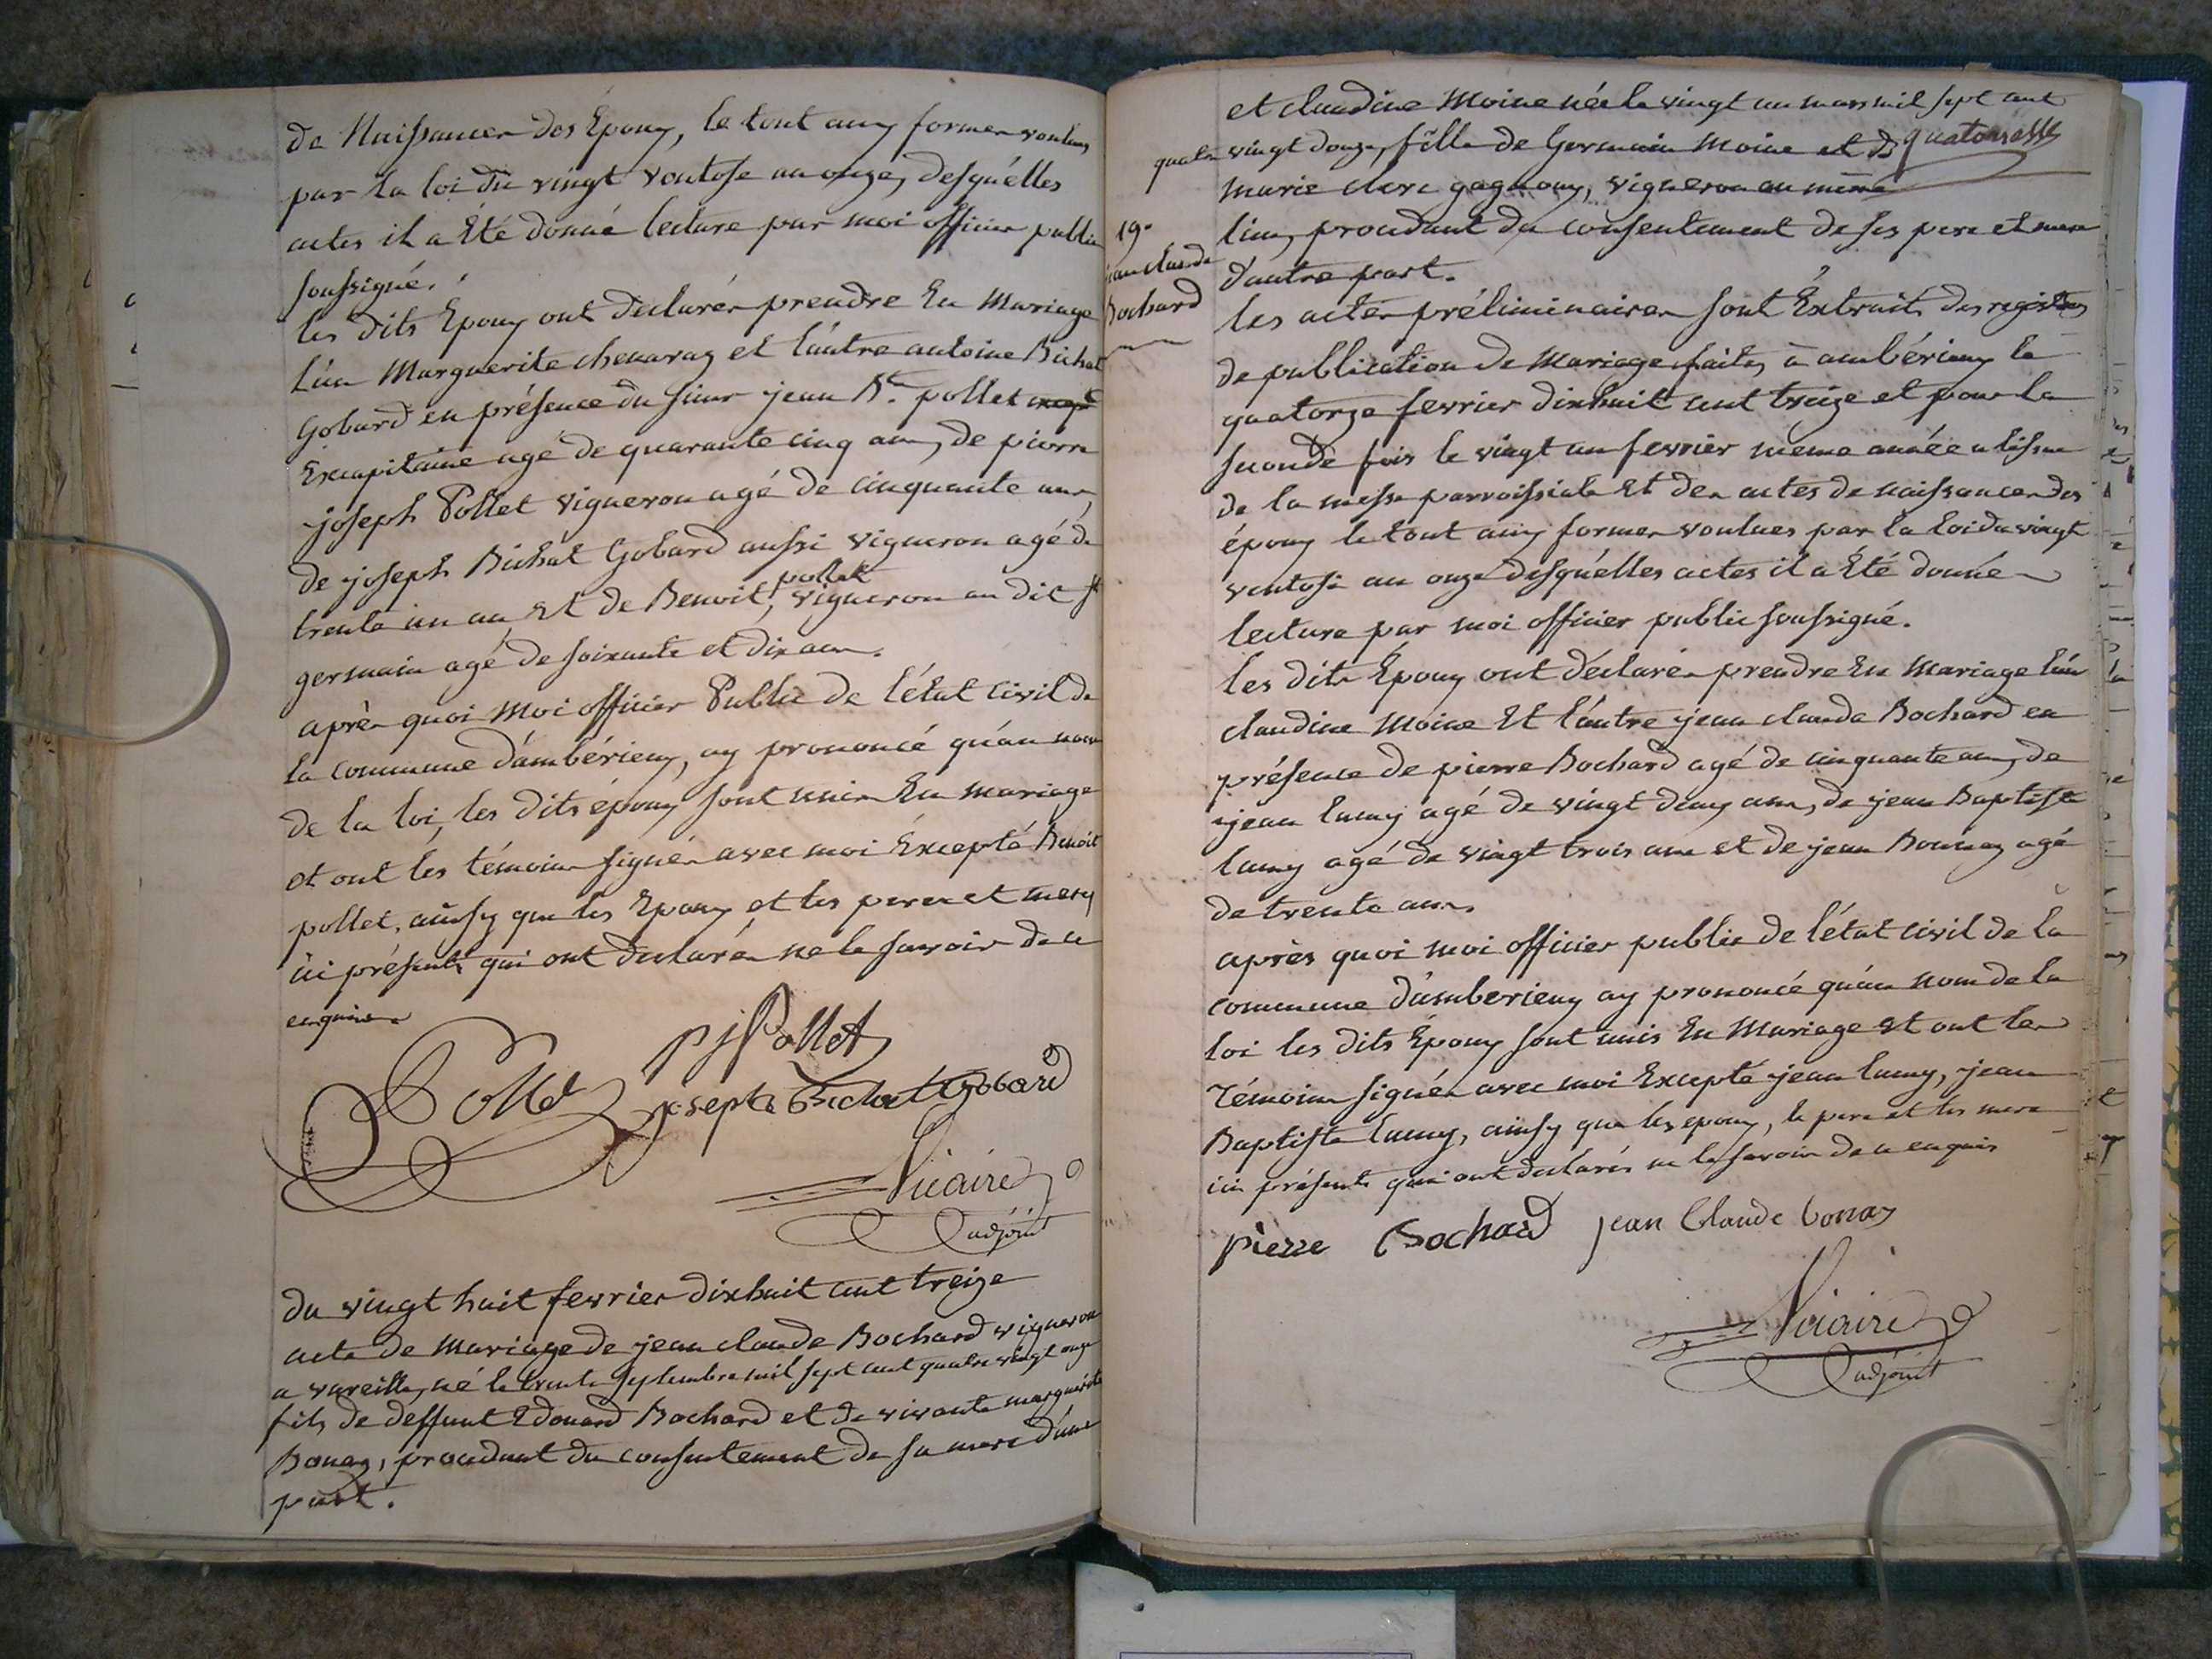 de Naissances des Époux, le tout aux formes voulues
par la loi du vingt ventose an onze, desquélles
actes il a Été donné lecture par moi officier public
soussigné.
les dits Époux ont déclarés prendre En Mariage
l'un Marguerite chenavaz et l'autre antoine Bichat
Gobard en présence du sieur jean Bte pollet
Excapitaine agé de quarante cinq ans, de pierre
joseph Pollet vigneron agé de cinquante ans
de joseph Bichat Gobard aussi vigneron agé de
trente un an Et de Benoit pollet, vigneron au dit st
germain agé de soixante et dix ans.
après quoi moi officier Public de l'état civil de
la commune d'ambérieux, ay prononcé qu'au nom
de la loi, les dits époux sont unis En mariage
et ont lés témoins signés avec moi Éxcepté Benoit
pollet, ainsy que les Epoux et les peres et meres
ici présents qui ont declarés ne le savoir de ce
enquis
Pollet
pjPollet
joseph Bichat Gobard
Vicaire
adjoint
du vingt huit fevrier dixhuit cent treize
acte de mariage de jean claude Bochard vigneron
a vareille, né le trente septembre mil sept cent quatre vingt onze
fils de deffunt Edouard Bochard et de vivante marguérite
Bonaz, procedant du consentement de sa mere d'une
part.
19e
jean claude
Bochard
et claudine Moine née le vingt un mars mil sept cent
quatre vingt douze, fille de Germain Moine et de
marie clerc gagnoux, vigneron au même
lieu, procedant du consentement de ses pere et mere
d'autre part.
les actes préliminaires sont Éxtraits des registres
de publication de Mariage faites à ambérieux le
quatorze fevrier dixhuit cent treize et pour la
seconde fois le vingt un fevrier meme année a lissue
de la messe parroissiale Et des actes de naissances des
époux le tout aux formes voulues par la loi du vingt
ventose an onze desquélles actes il a Été donné
lecture par moi officier public soussigné.
les dits Époux ont déclarés prendre En Mariage l'un
claudine Moine Et l'autre jean claude Bochard en
présence de pierre Bochard agé de cinquante ans, de
jean lamy agé de vingt deux ans, de jean Baptiste
lamy agé de vingt trois ans et de jean Bonnaz agé
de trente ans.
après quoi moi officier public de l'état civil de la
commune d'amberieux ay prononcé qu'au nom de la
loi les dits Époux sont unis En Mariage Et ont les
Témoins signés avec moi Éxcepté jean lamy, jean
Baptiste lamy, ainsy que les epoux, le pere et les mere
ici présents qui ont declarés ne le savoir de ce enquis
pierre Bochard jean Claude bonaz
Vicaire
adjoint